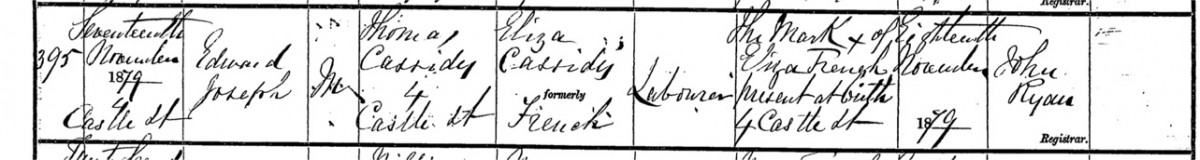 Registrar.
395
Seventeenth
November
1879
4
Castle St
Edward
Joseph
M
Thomas
Cassidy
4
Castle St
Eliza
Cassidy
formerly
French
Labourer
The Mark x of
Eliza French
present at birth
4 Castle St
Eighteenth
November
1879
John
Ryan
Registrar.